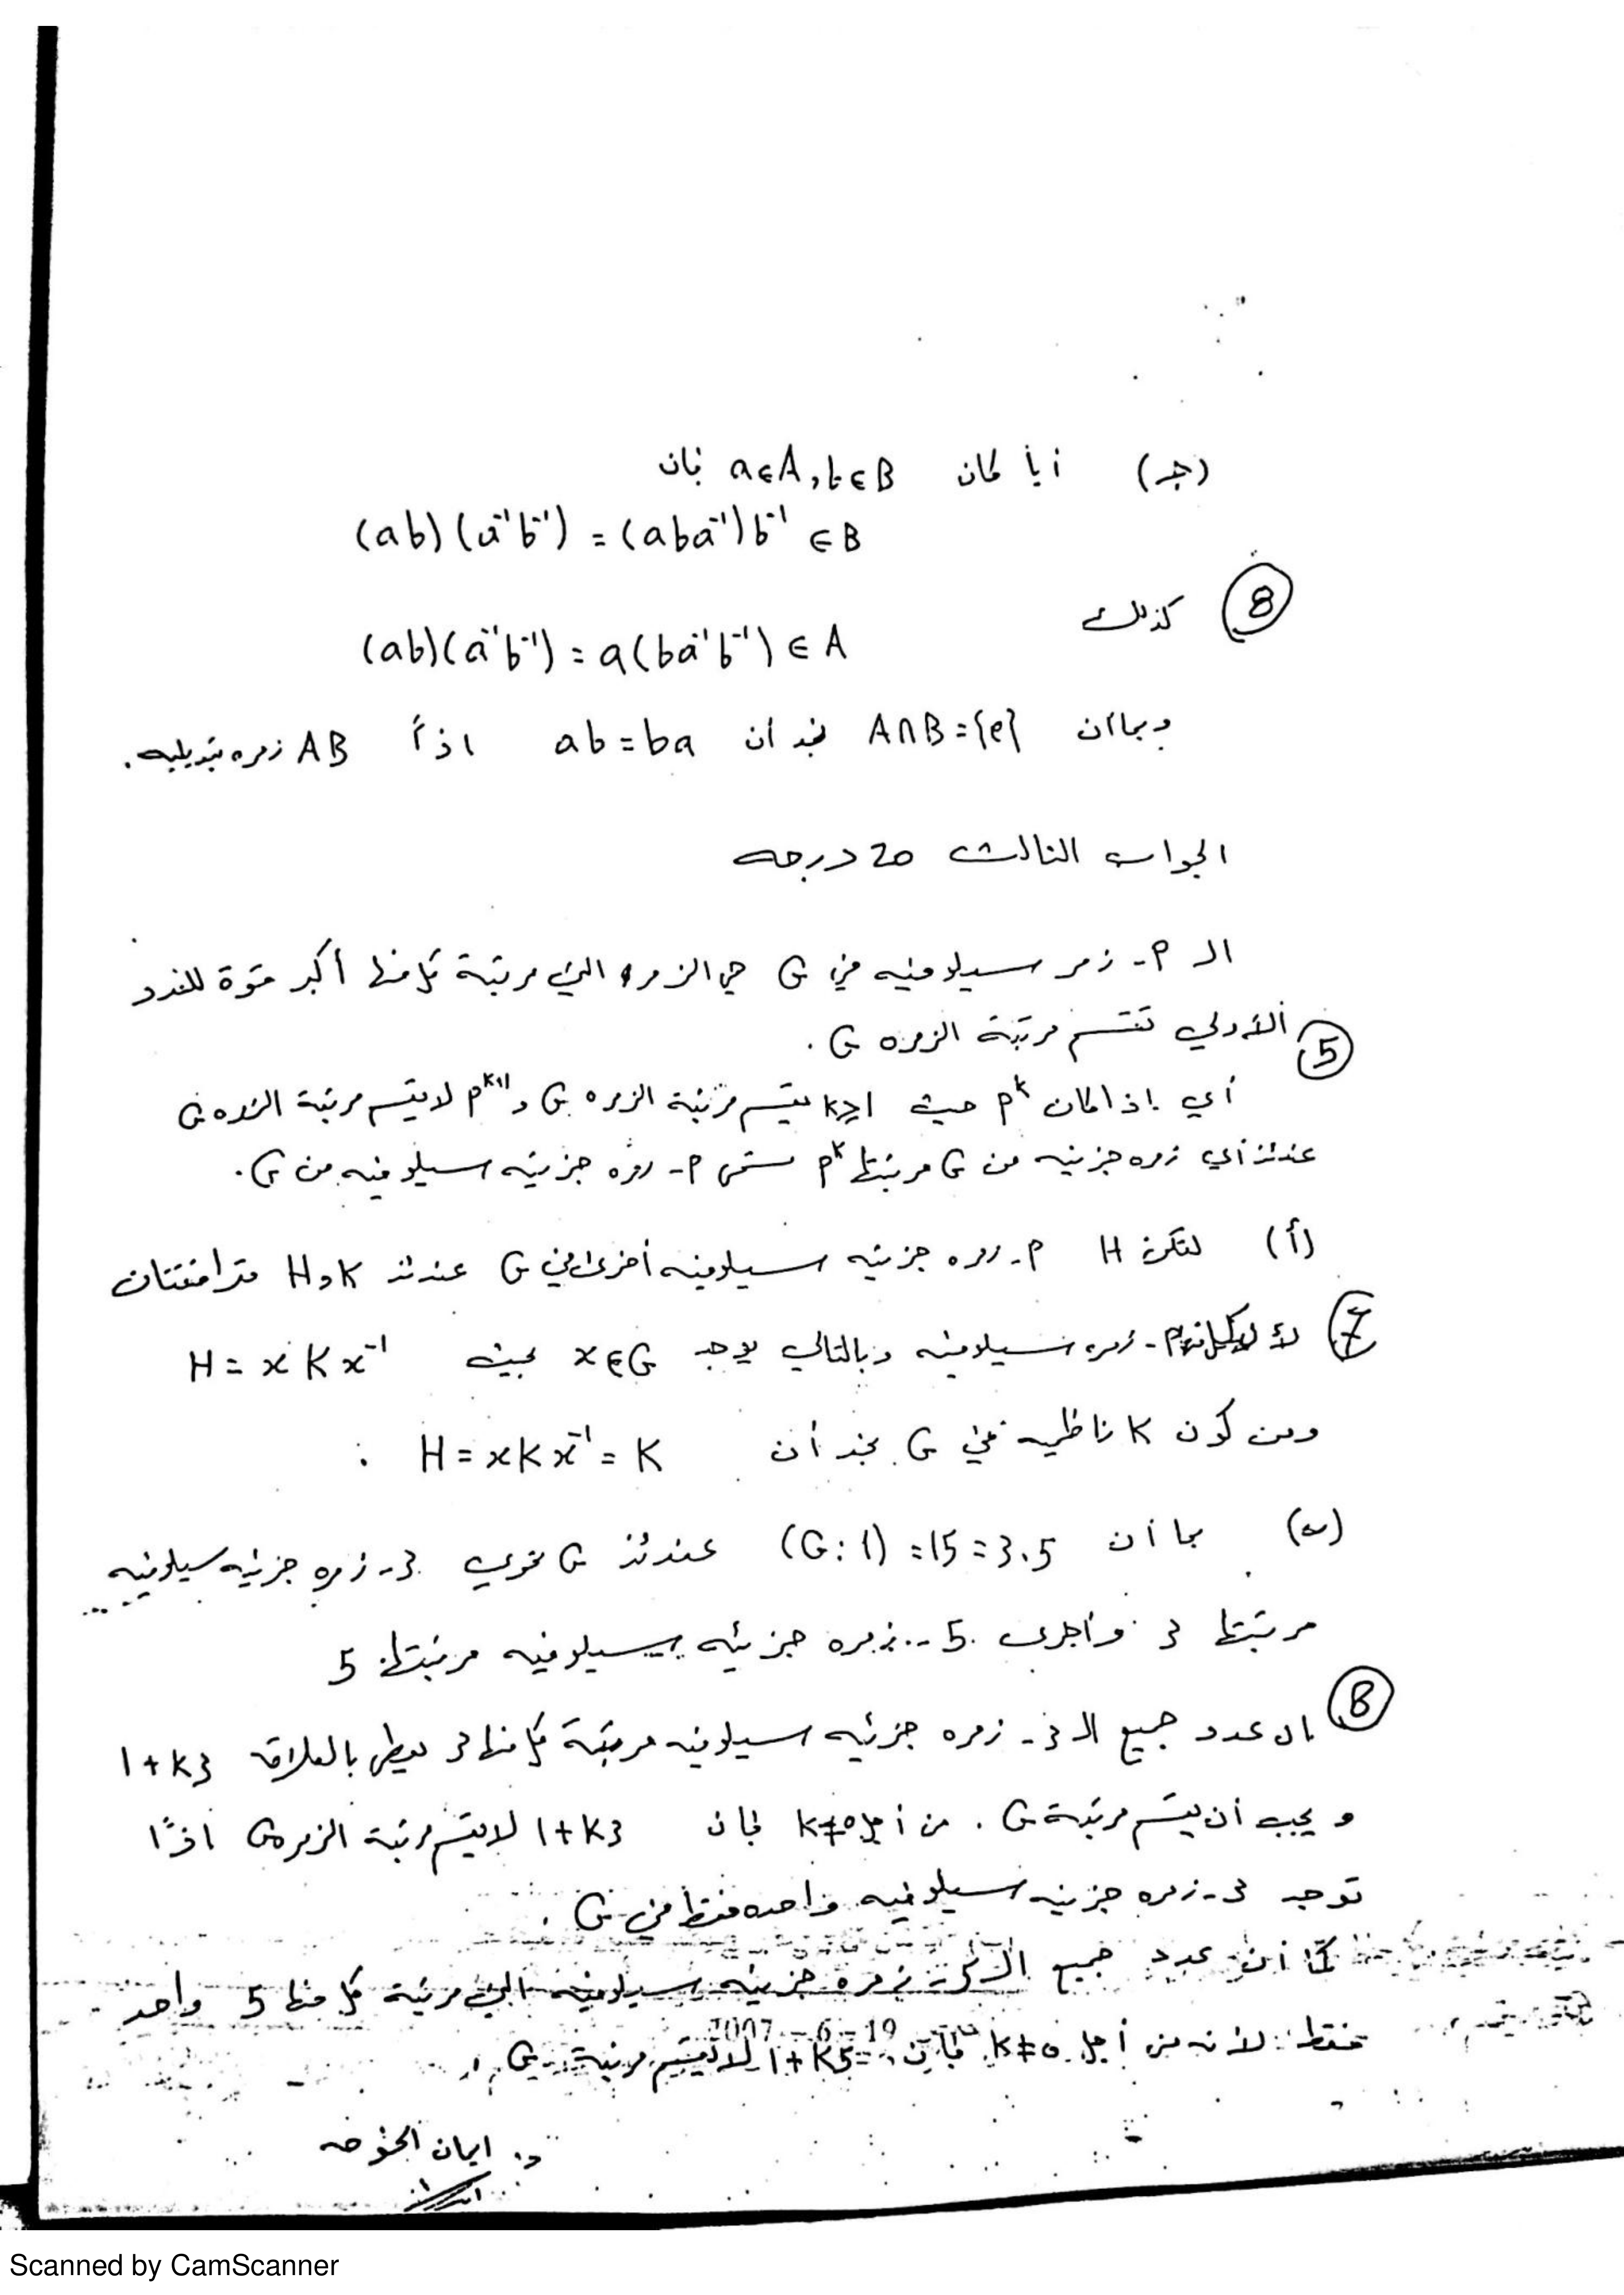 (جـ) أياً كان a∈A, b∈B فإن
(ab)(a⁻¹b⁻¹) = (aba⁻¹)b⁻¹ ∈ B
⑧ كذلك
(ab)(a⁻¹b⁻¹) = a(ba⁻¹b⁻¹) ∈ A
وبما أن A∩B={e} نجد أن ab=ba اذاً AB زمره تبديليه.
الجواب الثالث 20 درجه
الـ P- زمر سيلوفيه في G هي الزمر التي مرتبة كل منها أكبر قوة للعدد
⑤ الأولي تقسم مرتبة الزمره G.
أي إذا كان P^k حيث k≥1 يقسم مرتبة الزمره G و P^{k+1} لا يقسم مرتبة الزمره G
عندئذ أي زمره جزئيه من G مرتبتها P^k تسمى P- زمره جزئيه سيلوفيه من G.
(أ) لتكن H P- زمره جزئيه سيلوفيه أخرى في G عندئذ H و K مترافقتان
⑦ زمره سيلوفيه وبالتالي يوجد x∈G بحيث H = x K x⁻¹
ومن كون K ناظميه في G نجد أن H = xKx⁻¹ = K .
(ب) بما أن (G:1) = 15 = 3.5 عندئذ G تحوي 3- زمره جزئيه سيلوفيه
مرتبتها 3 وأخرى 5- زمره جزئيه سيلوفيه مرتبتها 5
⑧ إن عدد جميع الـ 3- زمره جزئيه سيلوفيه مرتبة كل منها 3 يعطى بالعلاقه 1+k3
و يجب أن يقسم مرتبة G . من أجل k≠0 فإن 1+k3 لا يقسم مرتبة الزمره G اذاً
توجد 3- زمره جزئيه سيلوفيه واحده فقط في G .
كما أن عدد جميع الـ 5- زمره جزئيه سيلوفيه التي مرتبة كل منها 5 واحد
19 - 6 - 2007
فقط لأنه من أجل k≠0 فإن 1+k5 لا يقسم مرتبة G .
د. ايمان الخوجه
Scanned by CamScanner